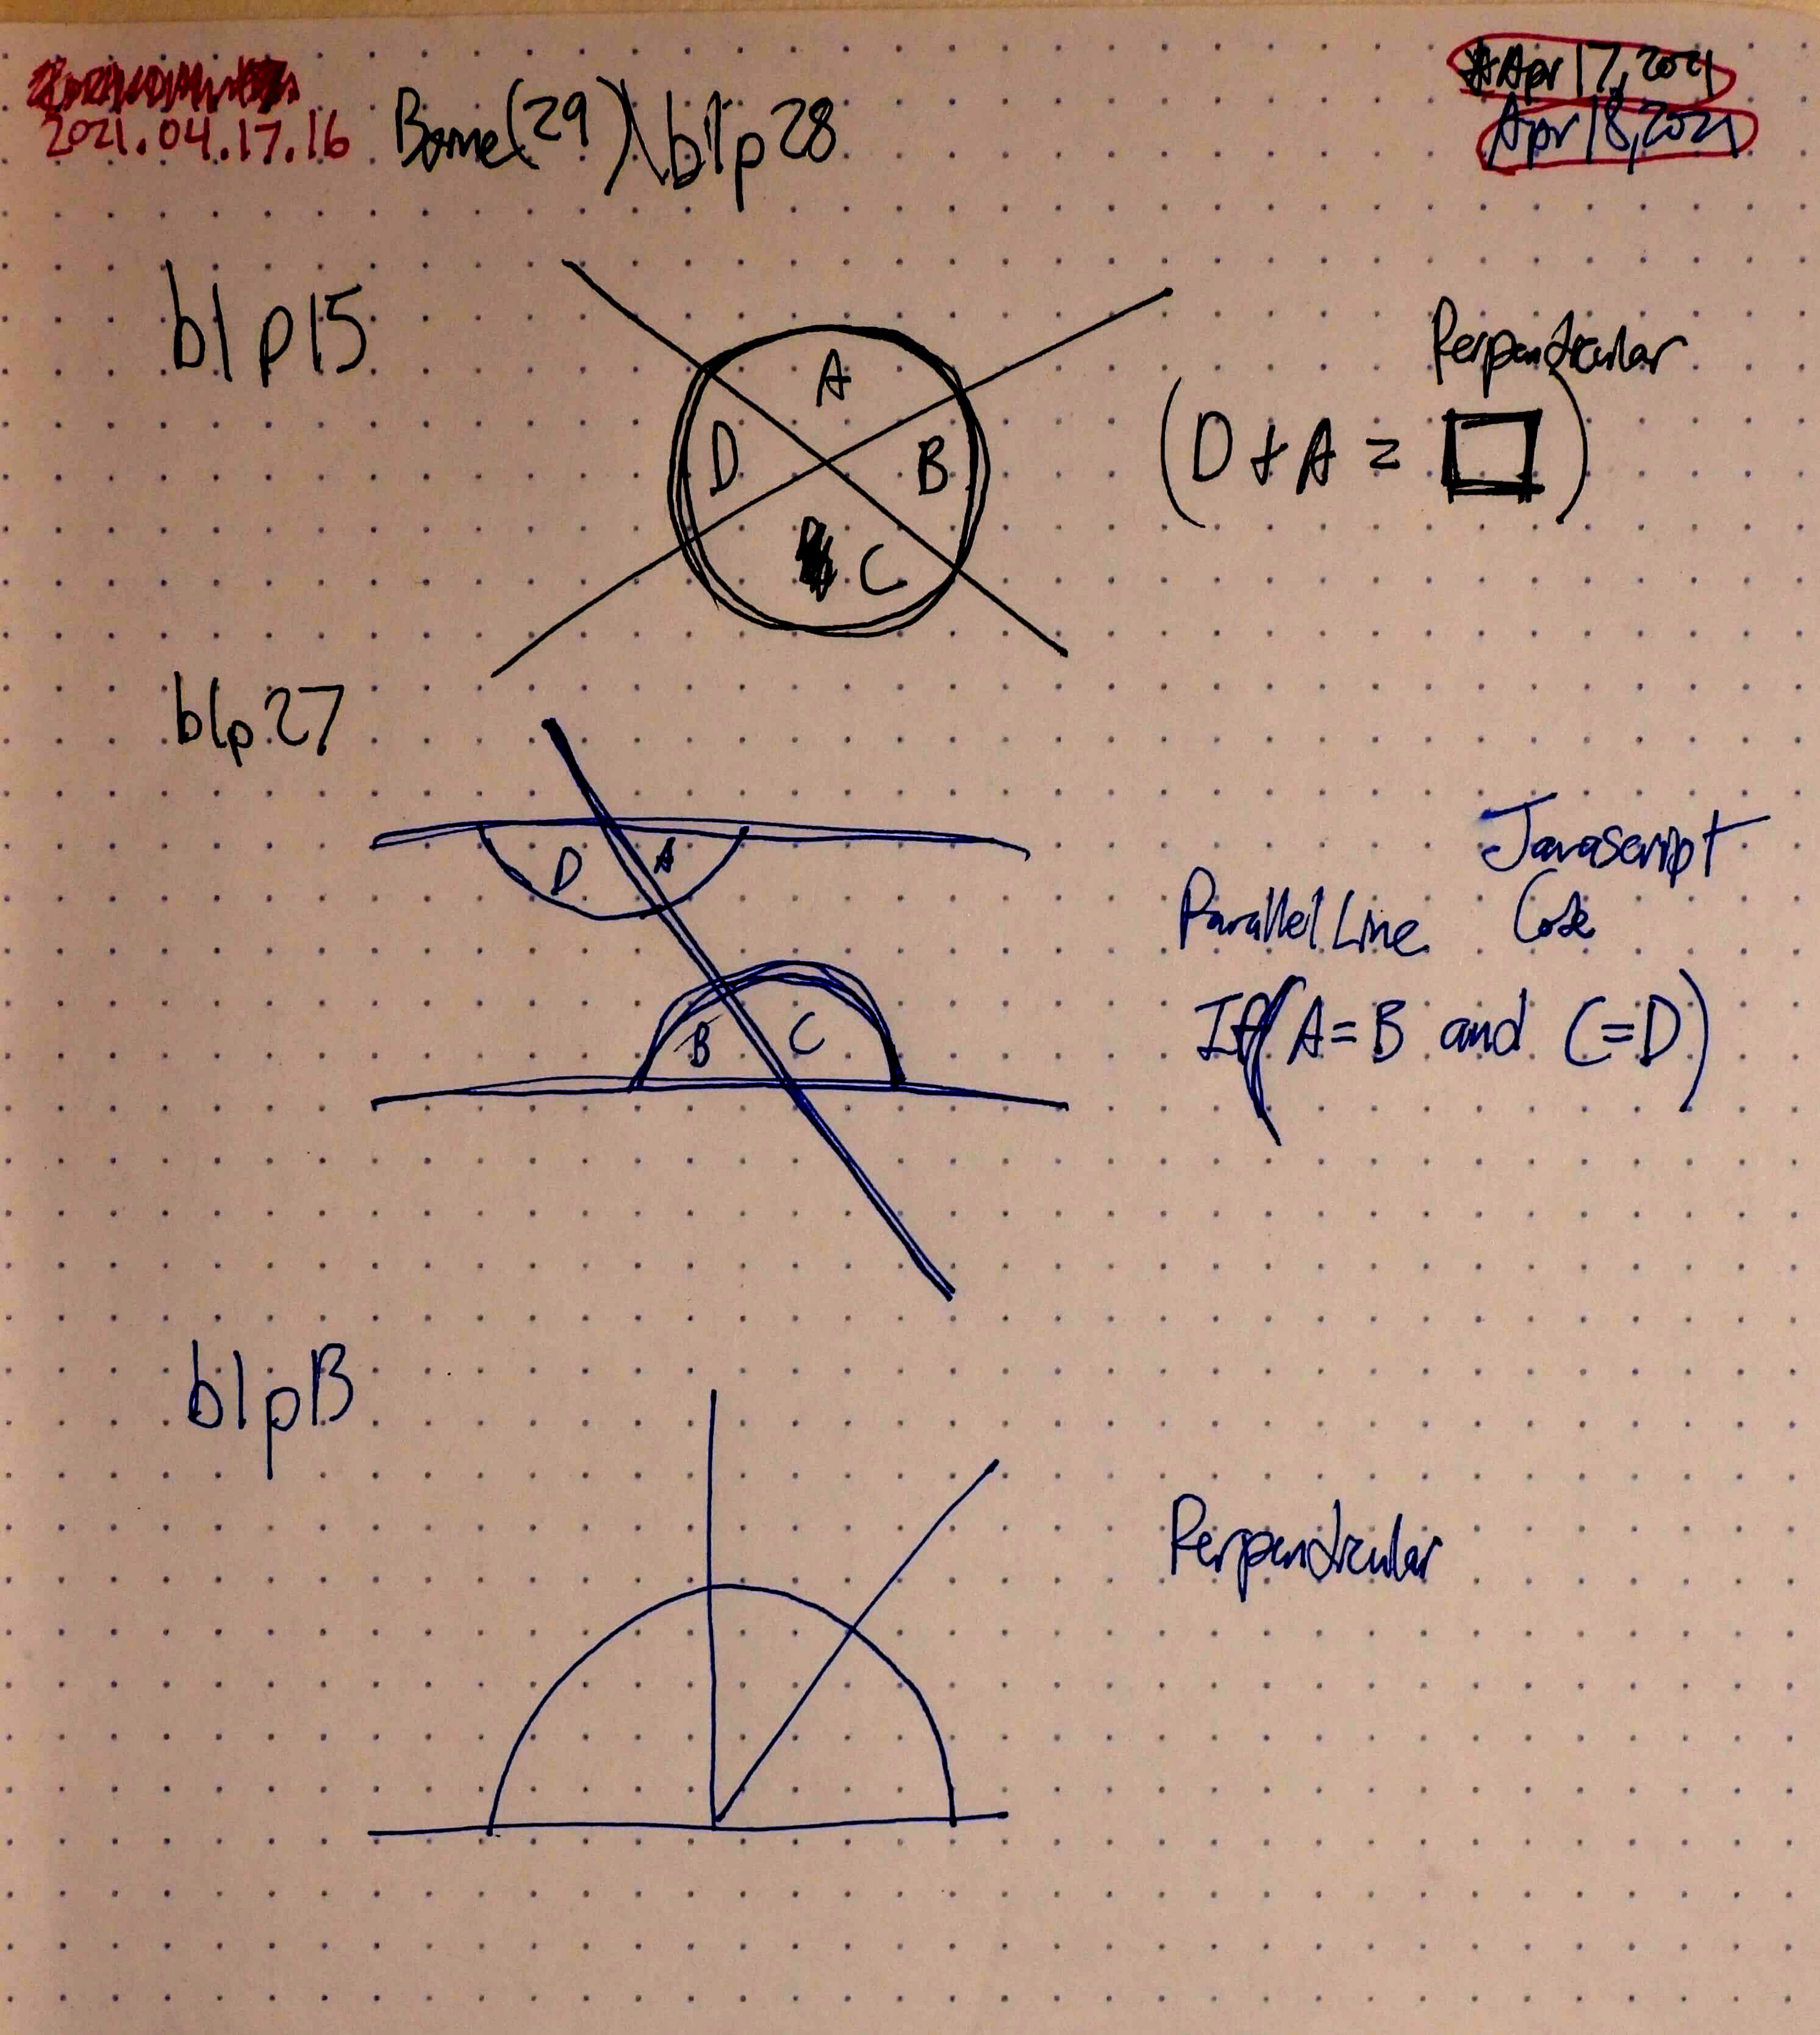 2021.04.17.16
Apr 17, 2021
Apr 18, 2021
b1p28
b1p15
A
D
B
C
Perpendicular
(D + A = □)
b1p27
D
A
B
C
Javascript
Code
Parallel Line
If(A=B and C=D)
b1p13
Perpendicular